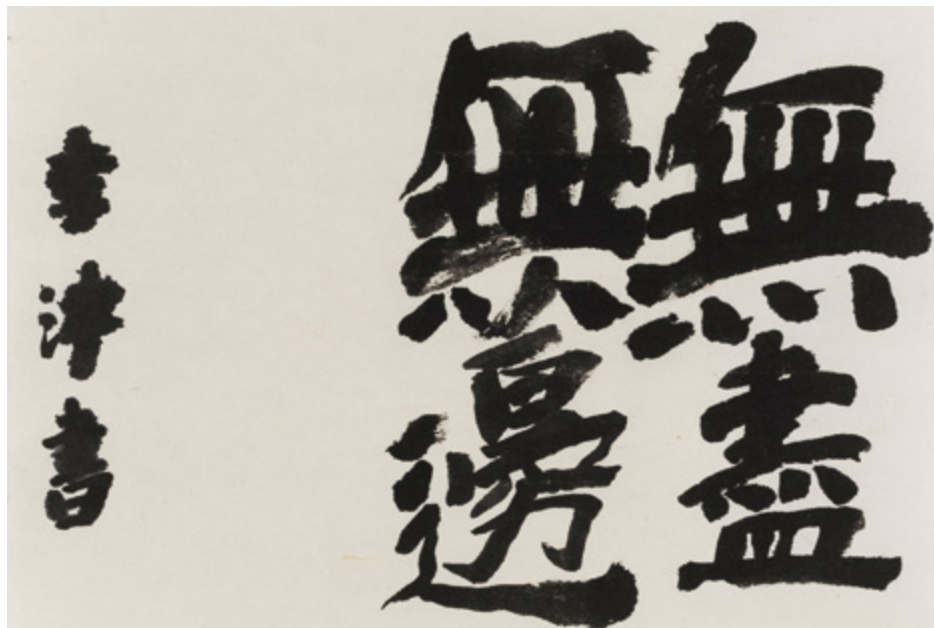 無盡
無邊
津書